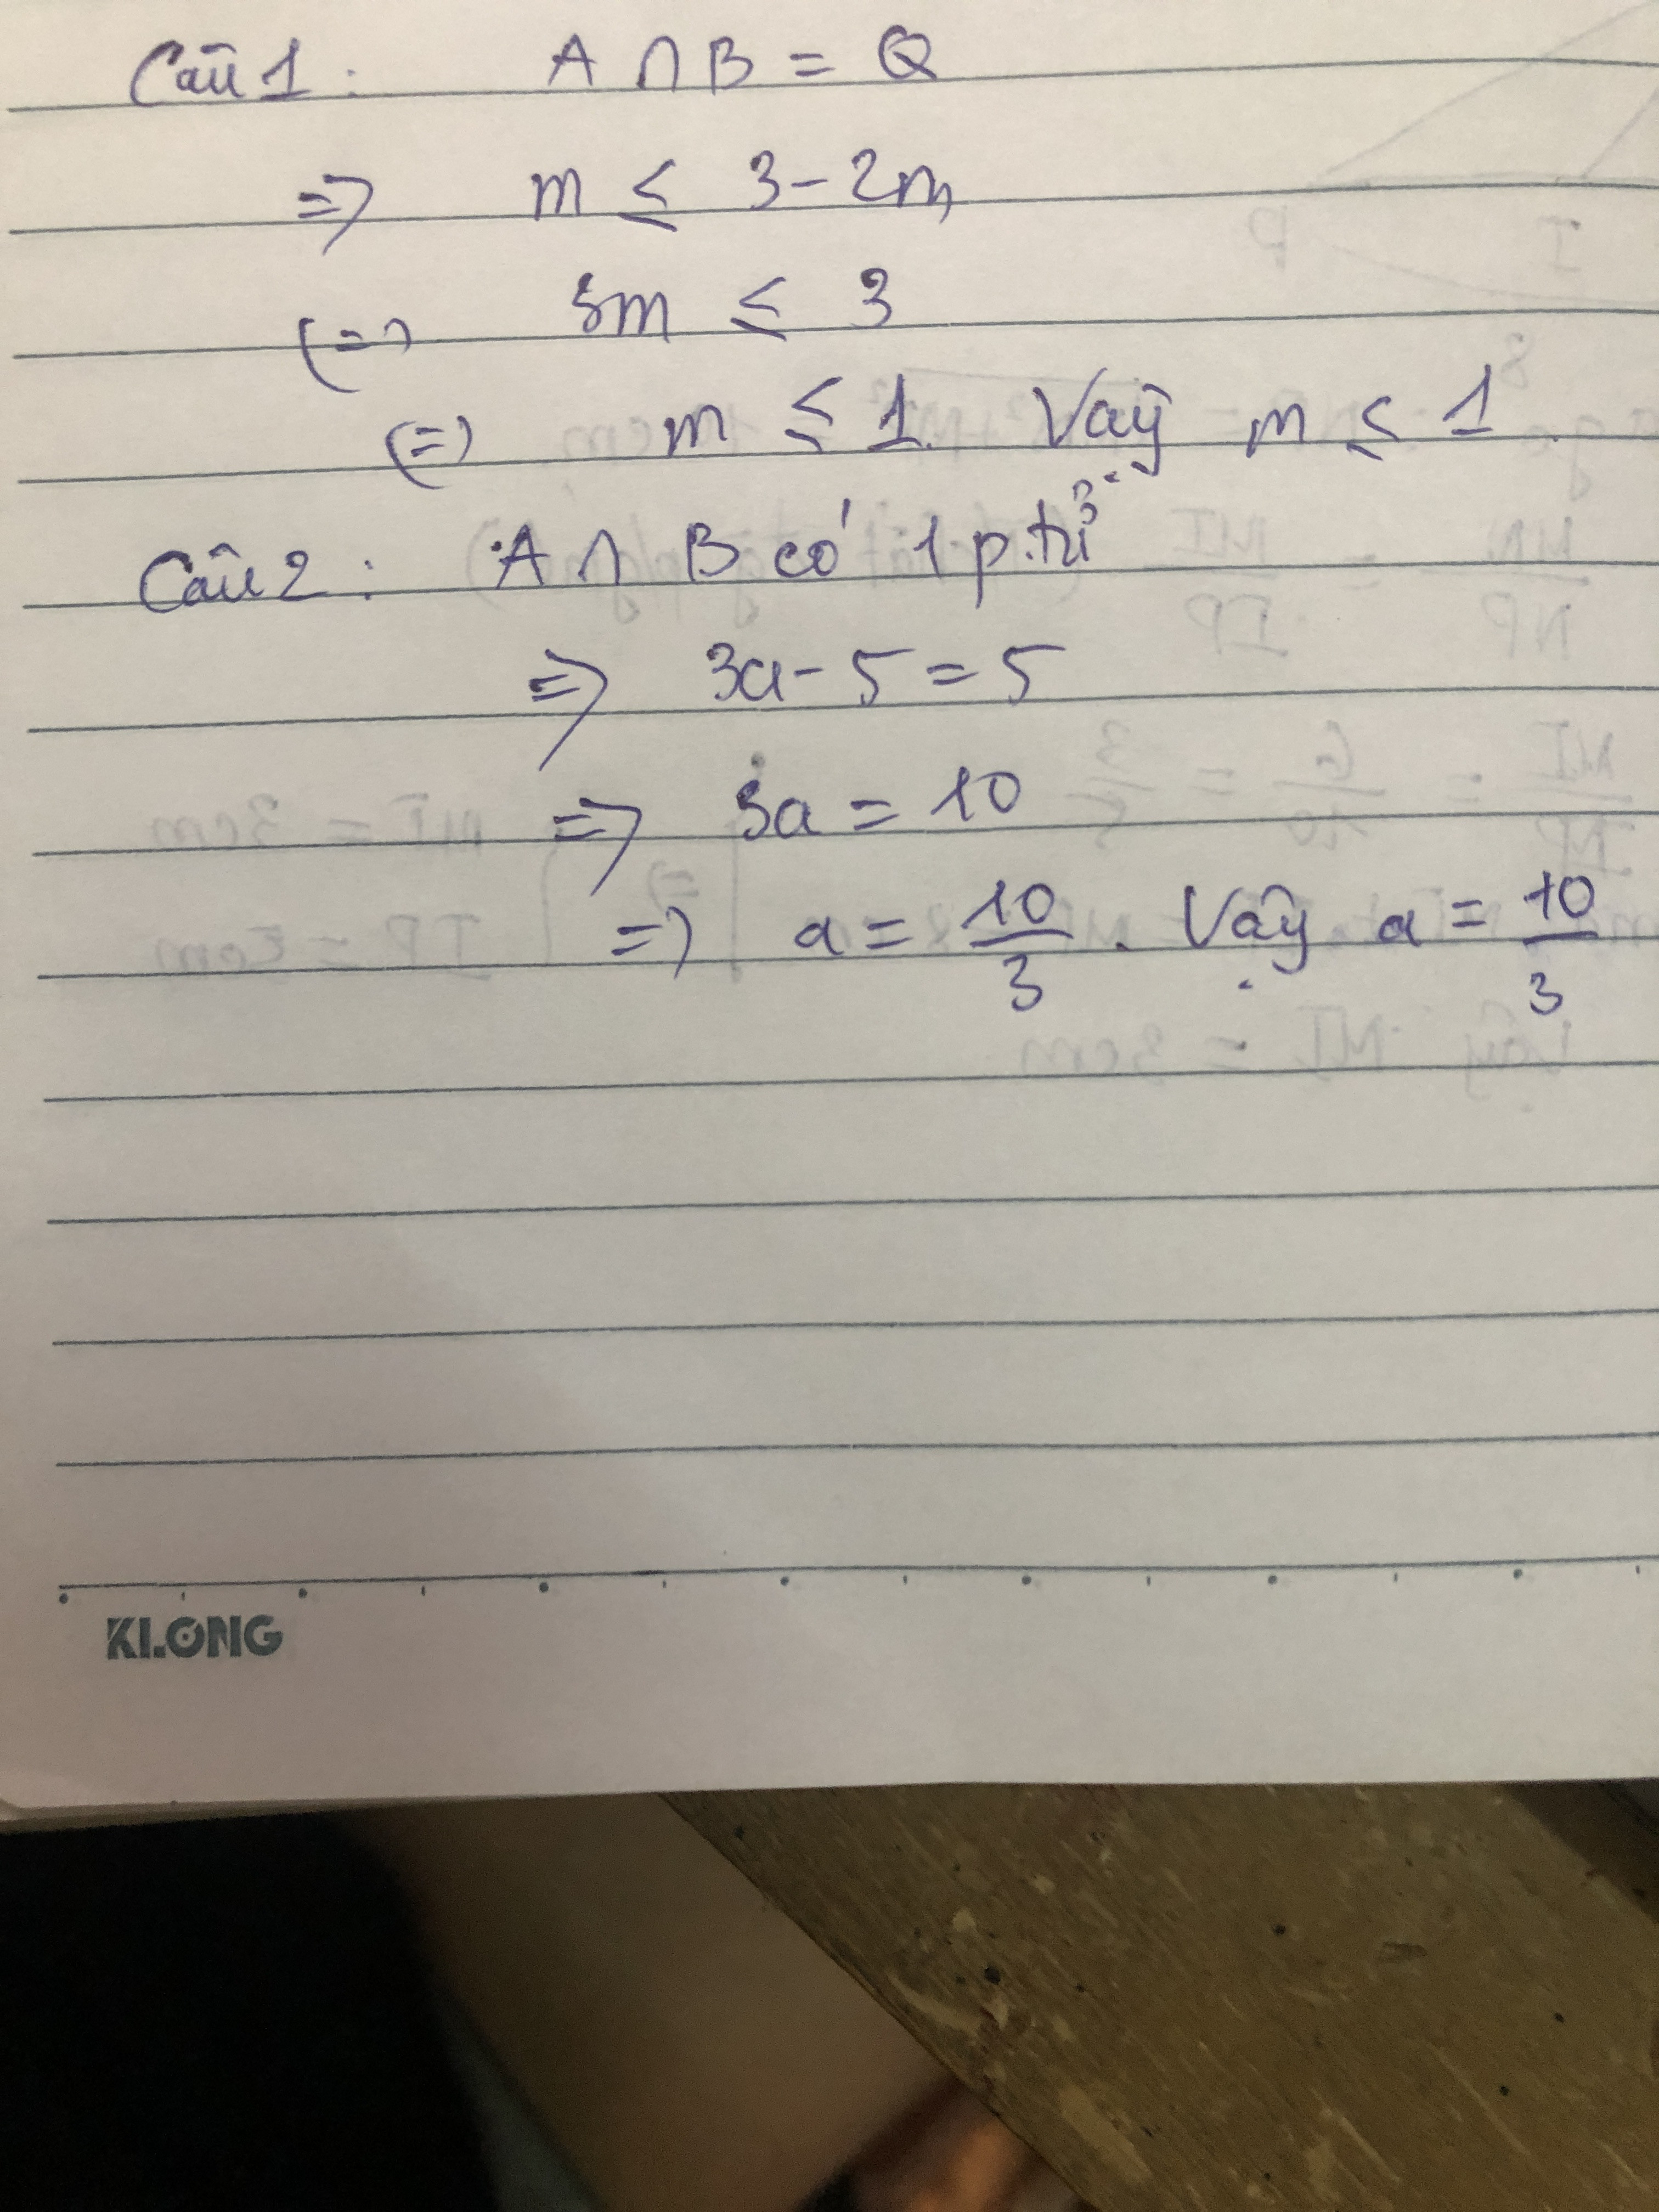 Câu 1 : A ∩ B = Ø
=> m ≤ 3 - 2m
(=) 3m ≤ 3
(=) m ≤ 1. Vậy m ≤ 1.
Câu 2 : A ∩ B có 1 p.tử
=> 3a - 5 = 5
=> 3a = 10
=> a = 10/3. Vậy a = 10/3
KLONG